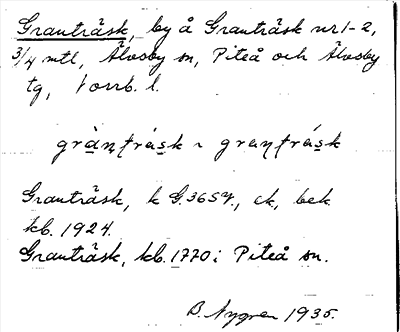 Granträsk, by å Granträsk nr 1-2,
3/4 mtl, Älvsby sn, Piteå och Älvsby
tg, Norrb. l.
gràn̩t̩räsk ~ gran̩t̩räsk
Granträsk, k G.3654., ck, bek
kb. 1924.
Granträsk, kb. 1770 i Piteå sn.
B. Nygren 1935.